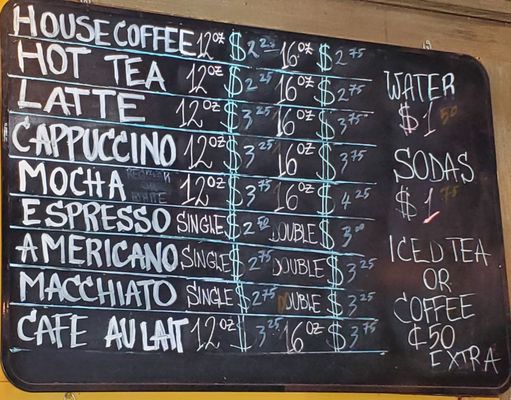 HOUSE COFFEE 12oz $2.25 16oz $2.75
HOT TEA 12oz $2.25 16oz $2.75
LATTE 12oz $3.25 16oz $3.75
CAPPUCCINO 12oz $3.25 16oz $3.75
MOCHA REGULAR OR WHITE 12oz $3.75 16oz $4.25
ESPRESSO SINGLE $2.50 DOUBLE $3.00
AMERICANO SINGLE $2.75 DOUBLE $3.25
MACCHIATO SINGLE $2.75 DOUBLE $3.25
CAFE AU LAIT 12oz $3.25 16oz $3.75
WATER
$1.50
SODAS
$1.75
ICED TEA
OR
COFFEE
¢50
EXTRA